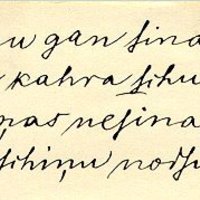 u gan ſina
kahra ſihu
ņas neſina
ſihiņu nodſu